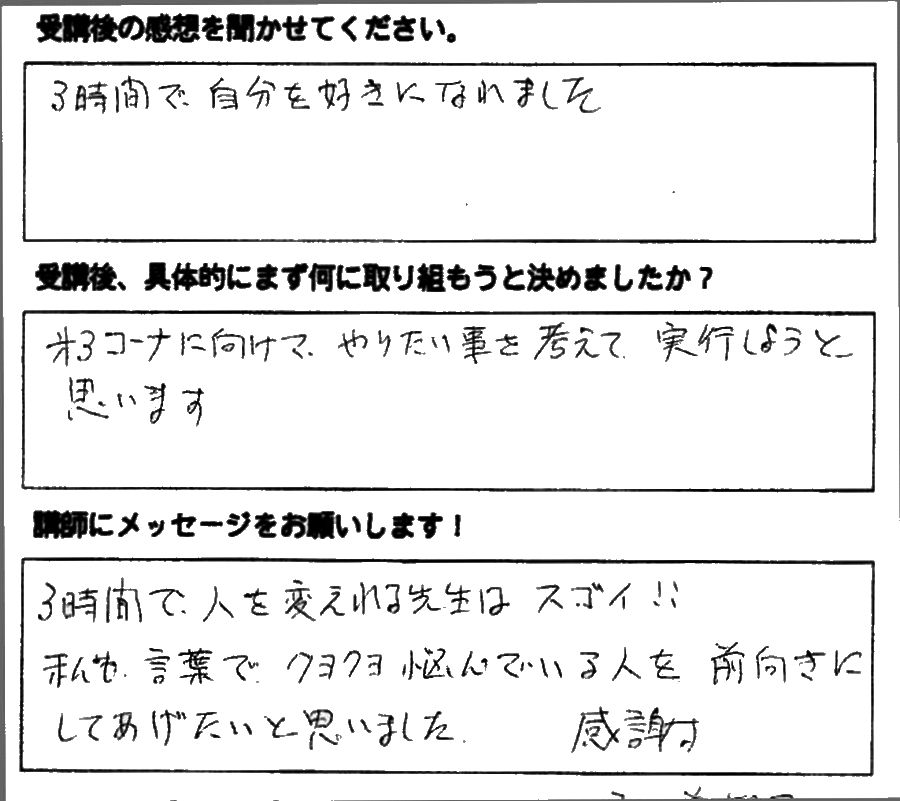 受講後の感想を聞かせてください。
3時間で、自分を好きになれました
受講後、具体的にまず何に取り組もうと決めましたか？
才3コーナに向けて、やりたい事を考えて、実行しようと
思います
講師にメッセージをお願いします！
3時間で、人を変えれる先生はスゴイ！！
私も、言葉で、クヨクヨ悩んでいる人を前向きに
してあげたいと思いました。 感謝